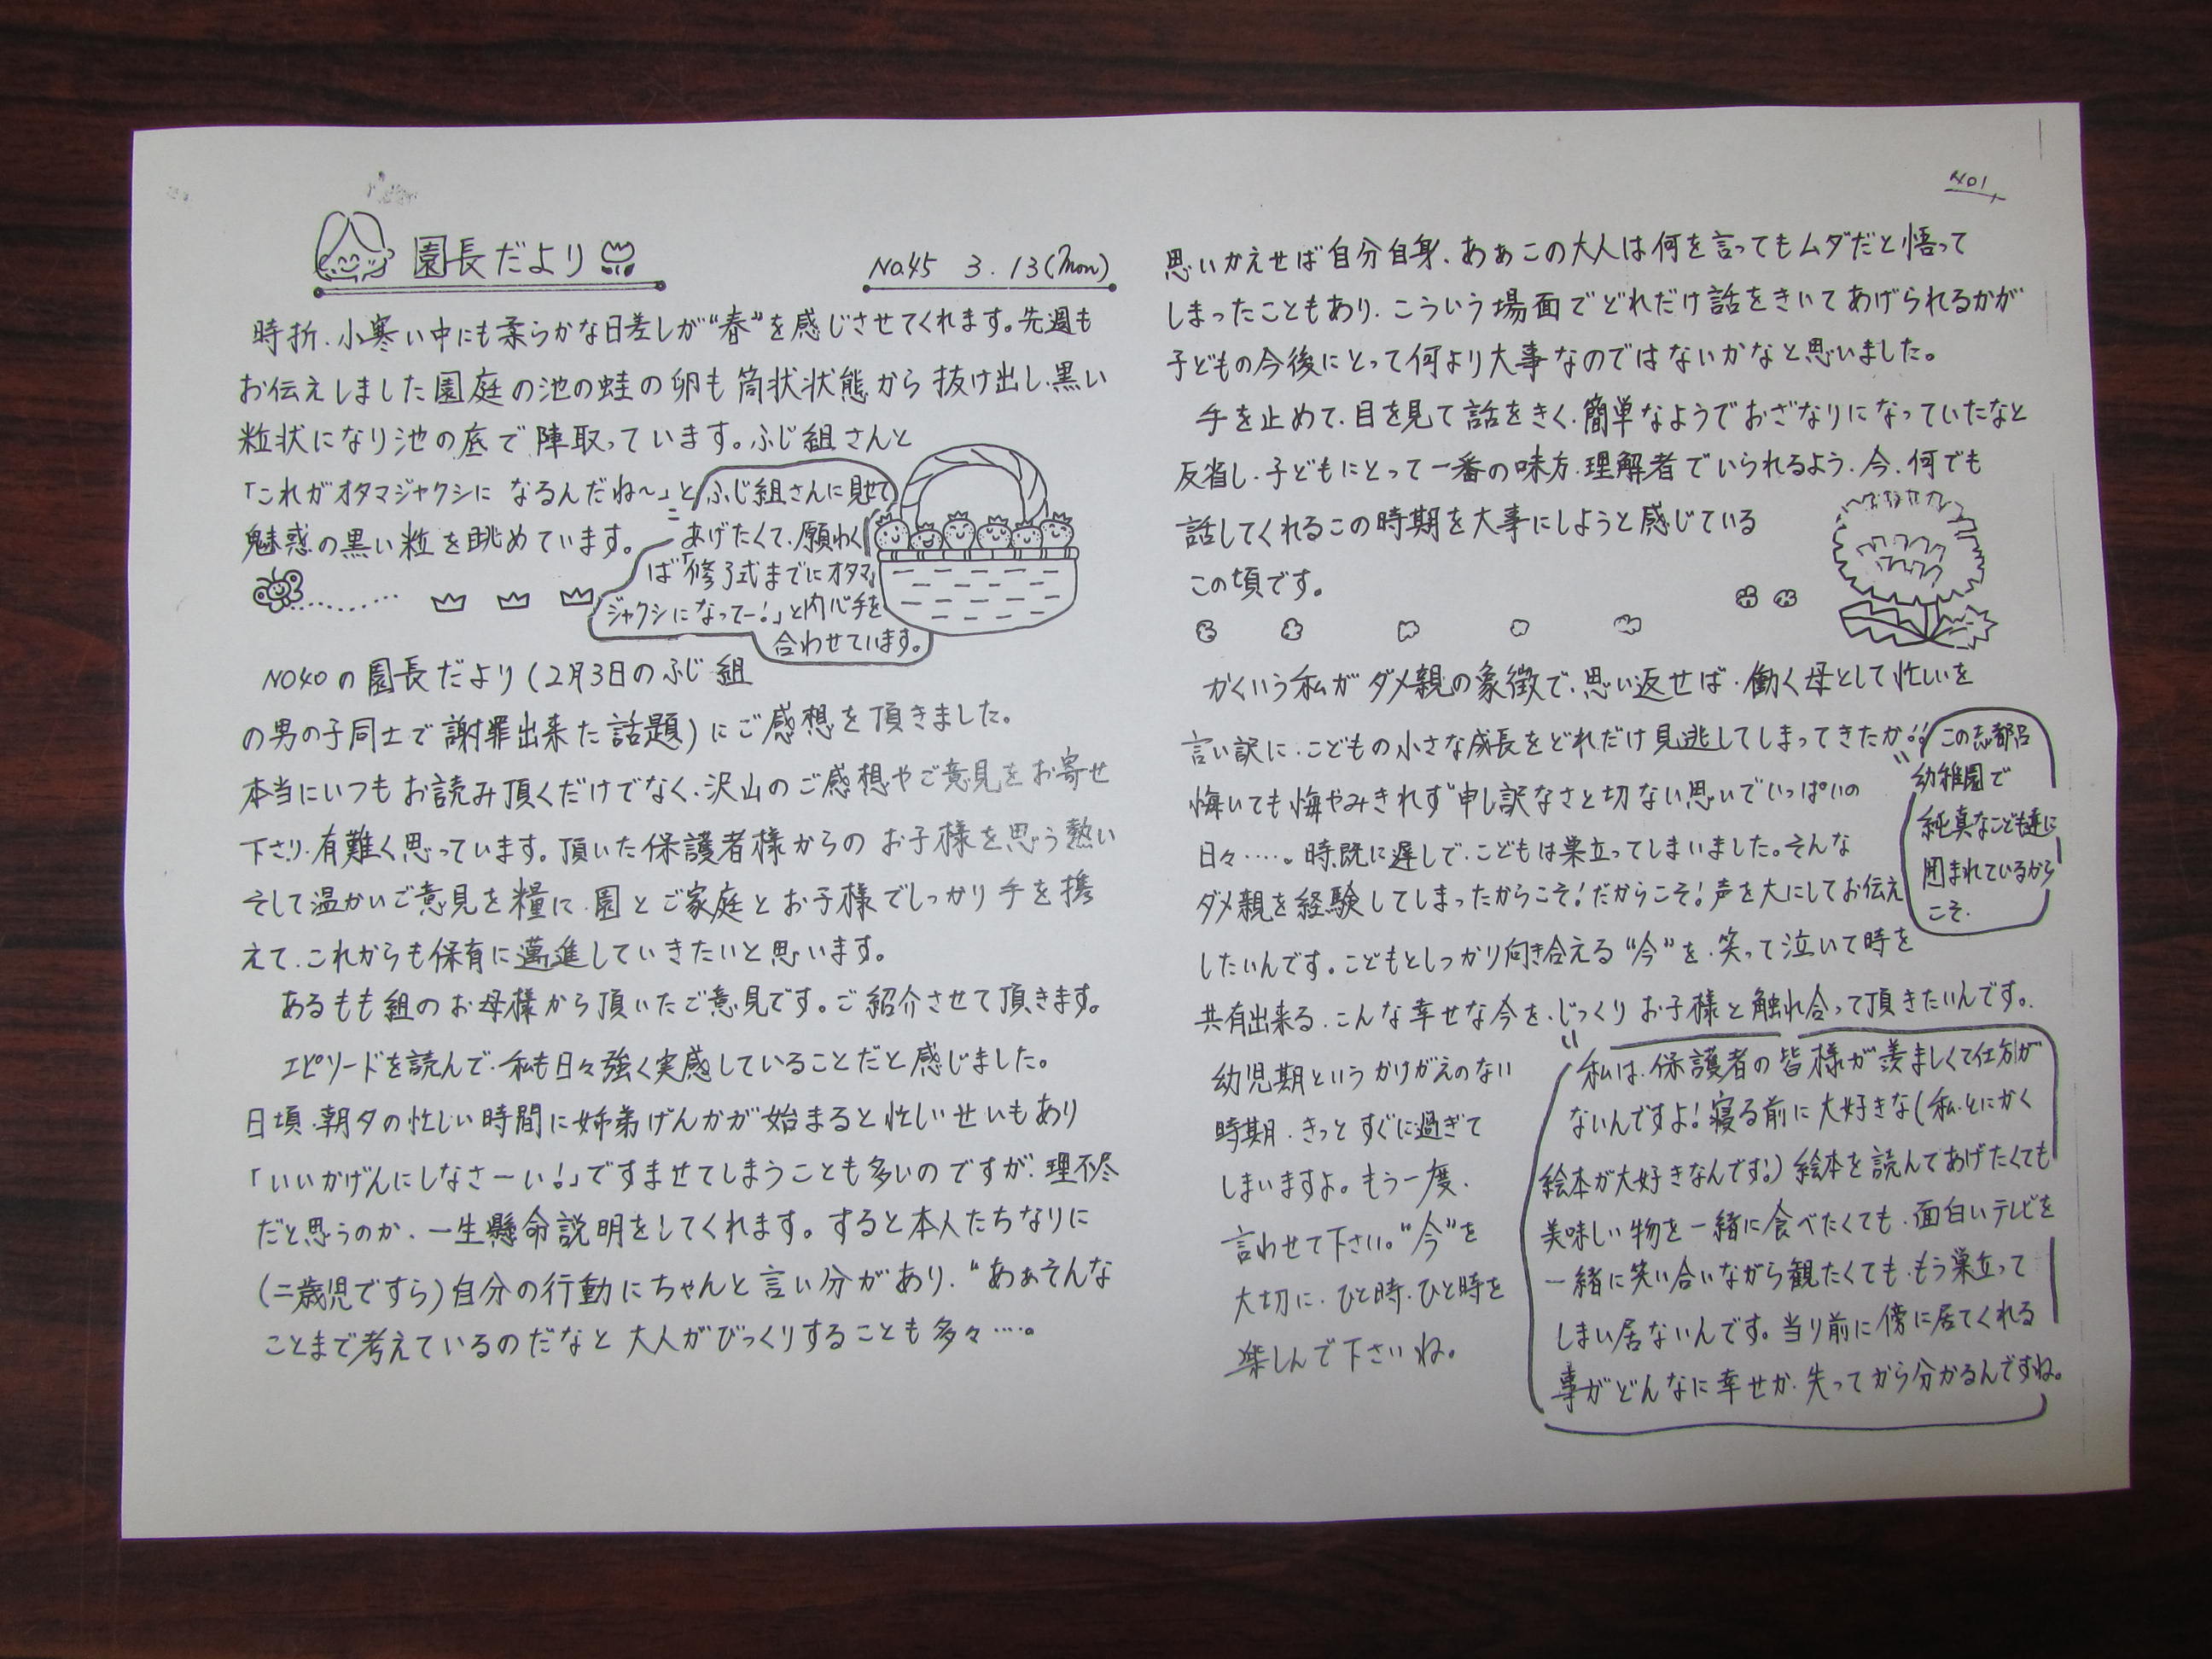 園長だより
No.45 3.13(Mon)
時折、小寒い中にも柔らかな日差しが"春"を感じさせてくれます。先週も
お伝えしました園庭の池の蛙の卵も筒状状態から抜け出し、黒い
粒状になり池の底で陣取っています。ふじ組さんと
「これがオタマジャクシになるんだね〜」と
魅惑の黒い粒を眺めています。
ふじ組さんに見せて
あげたくて、願わく
ば「修了式までにオタマ
ジャクシになってー!」と内心手を
合わせています。
NO40の園長だより(2月3日のふじ組
の男の子同士で謝罪出来た話題)にご感想を頂きました。
本当にいつもお読み頂くだけでなく、沢山のご感想やご意見をお寄せ
下さり、有難く思っています。頂いた保護者様からのお子様を思う熱い
そして温かいご意見を糧に、園とご家庭とお子様でしっかり手を携
えて、これからも保育に邁進していきたいと思います。
あるもも組のお母様から頂いたご意見です。ご紹介させて頂きます。
エピソードを読んで、私も日々強く実感していることだと感じました。
日頃、朝夕の忙しい時間に姉弟げんかが始まると忙しいせいもあり
「いいかげんにしなさーい!」ですませてしまうことも多いのですが、理不尽
だと思うのか、一生懸命説明をしてくれます。すると本人たちなりに
(二歳児ですら)自分の行動にちゃんと言い分があり、"あぁそんな
ことまで考えているのだなと大人がびっくりすることも多々……。
NO1
思いかえせば自分自身、あぁこの大人は何を言ってもムダだと悟って
しまったこともあり、こういう場面でどれだけ話をきいてあげられるかが
子どもの今後にとって何より大事なのではないかなと思いました。
手を止めて、目を見て話をきく、簡単なようでおざなりになっていたなと
反省し、子どもにとって一番の味方、理解者でいられるよう、今、何でも
話してくれるこの時期を大事にしようと感じている
この頃です。
かくいう私がダメ親の象徴で、思い返せば、働く母として忙しいを
言い訳に、こどもの小さな成長をどれだけ見逃してしまってきたか!!
悔いても悔やみきれず申し訳なさと切ない思いでいっぱいの
日々……。時、既に遅しで、こどもは巣立ってしまいました。そんな
ダメ親を経験してしまったからこそ!だからこそ!声を大にしてお伝え
したいんです。こどもとしっかり向き合える"今"を、笑って泣いて時を
共有出来る、こんな幸せな今を、じっくりお子様と触れ合って頂きたいんです。
この志都呂
幼稚園で
純真なこども達に
囲まれているから
こそ、
幼児期というかけがえのない
時期、きっとすぐに過ぎて
しまいますよ。もう一度、
言わせて下さい。"今"を
大切に、ひと時、ひと時を
楽しんで下さいね。
私は、保護者の皆様が羨ましくて仕方が
ないんですよ!寝る前に大好きな(私、とにかく
絵本が大好きなんです。)絵本を読んであげたくても
美味しい物を一緒に食べたくても、面白いテレビを
一緒に笑い合いながら観たくても、もう巣立って
しまい居ないんです。当り前に傍に居てくれる
事がどんなに幸せか、失ってから分かるんですね。